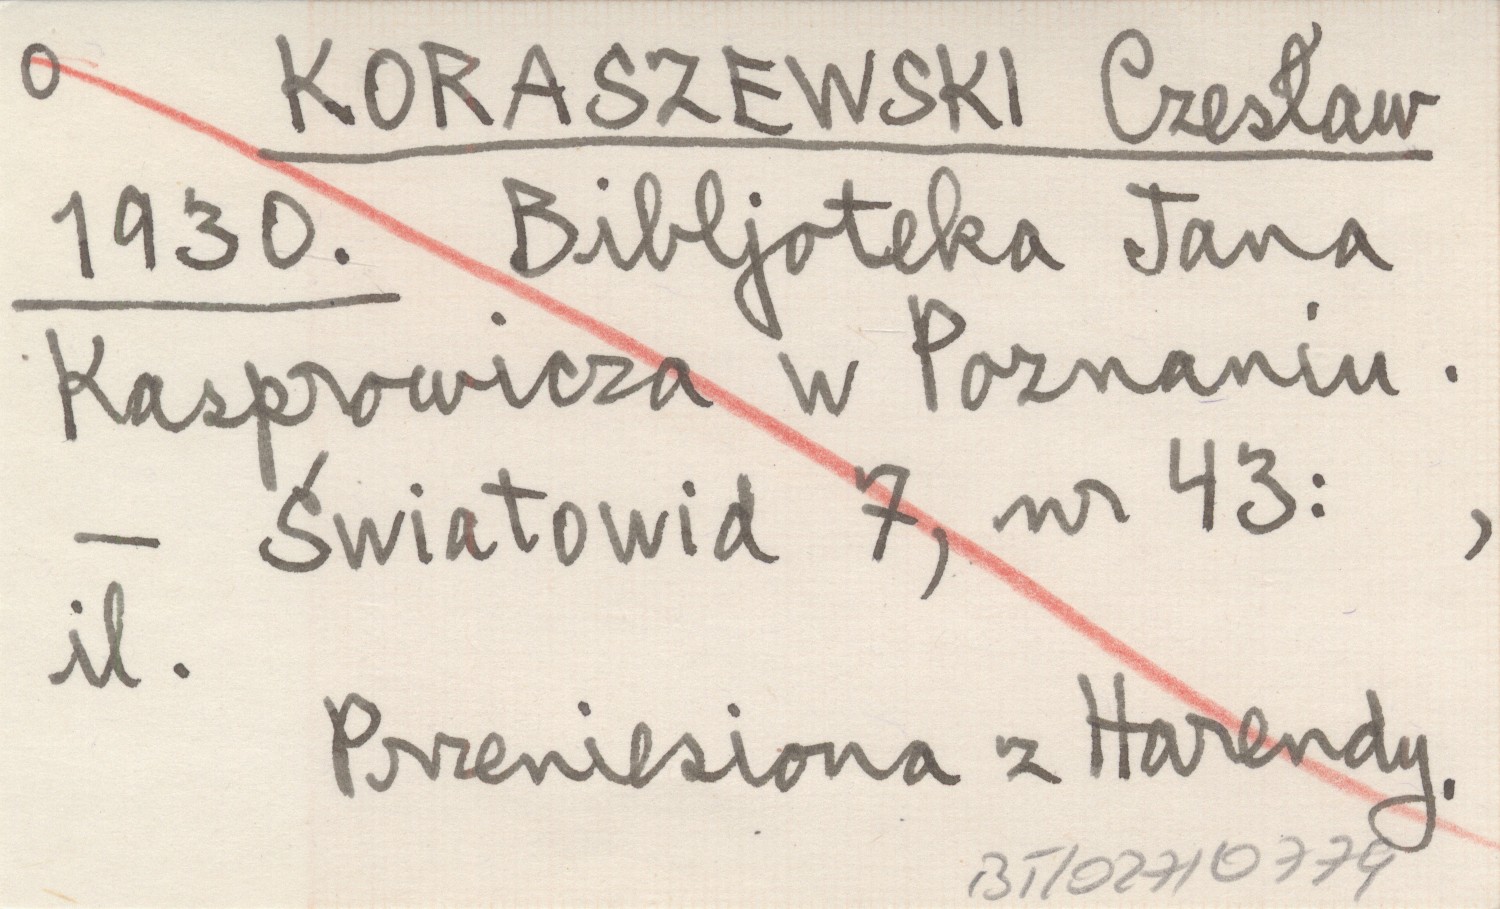 o KORASZEWSKI Czesław
1930. Bibljoteka Jana
Kasprowicza w Poznaniu.
— Światowid 7, nr 43: ,
il.
Przeniesiona z Harendy.
BT/027/0779